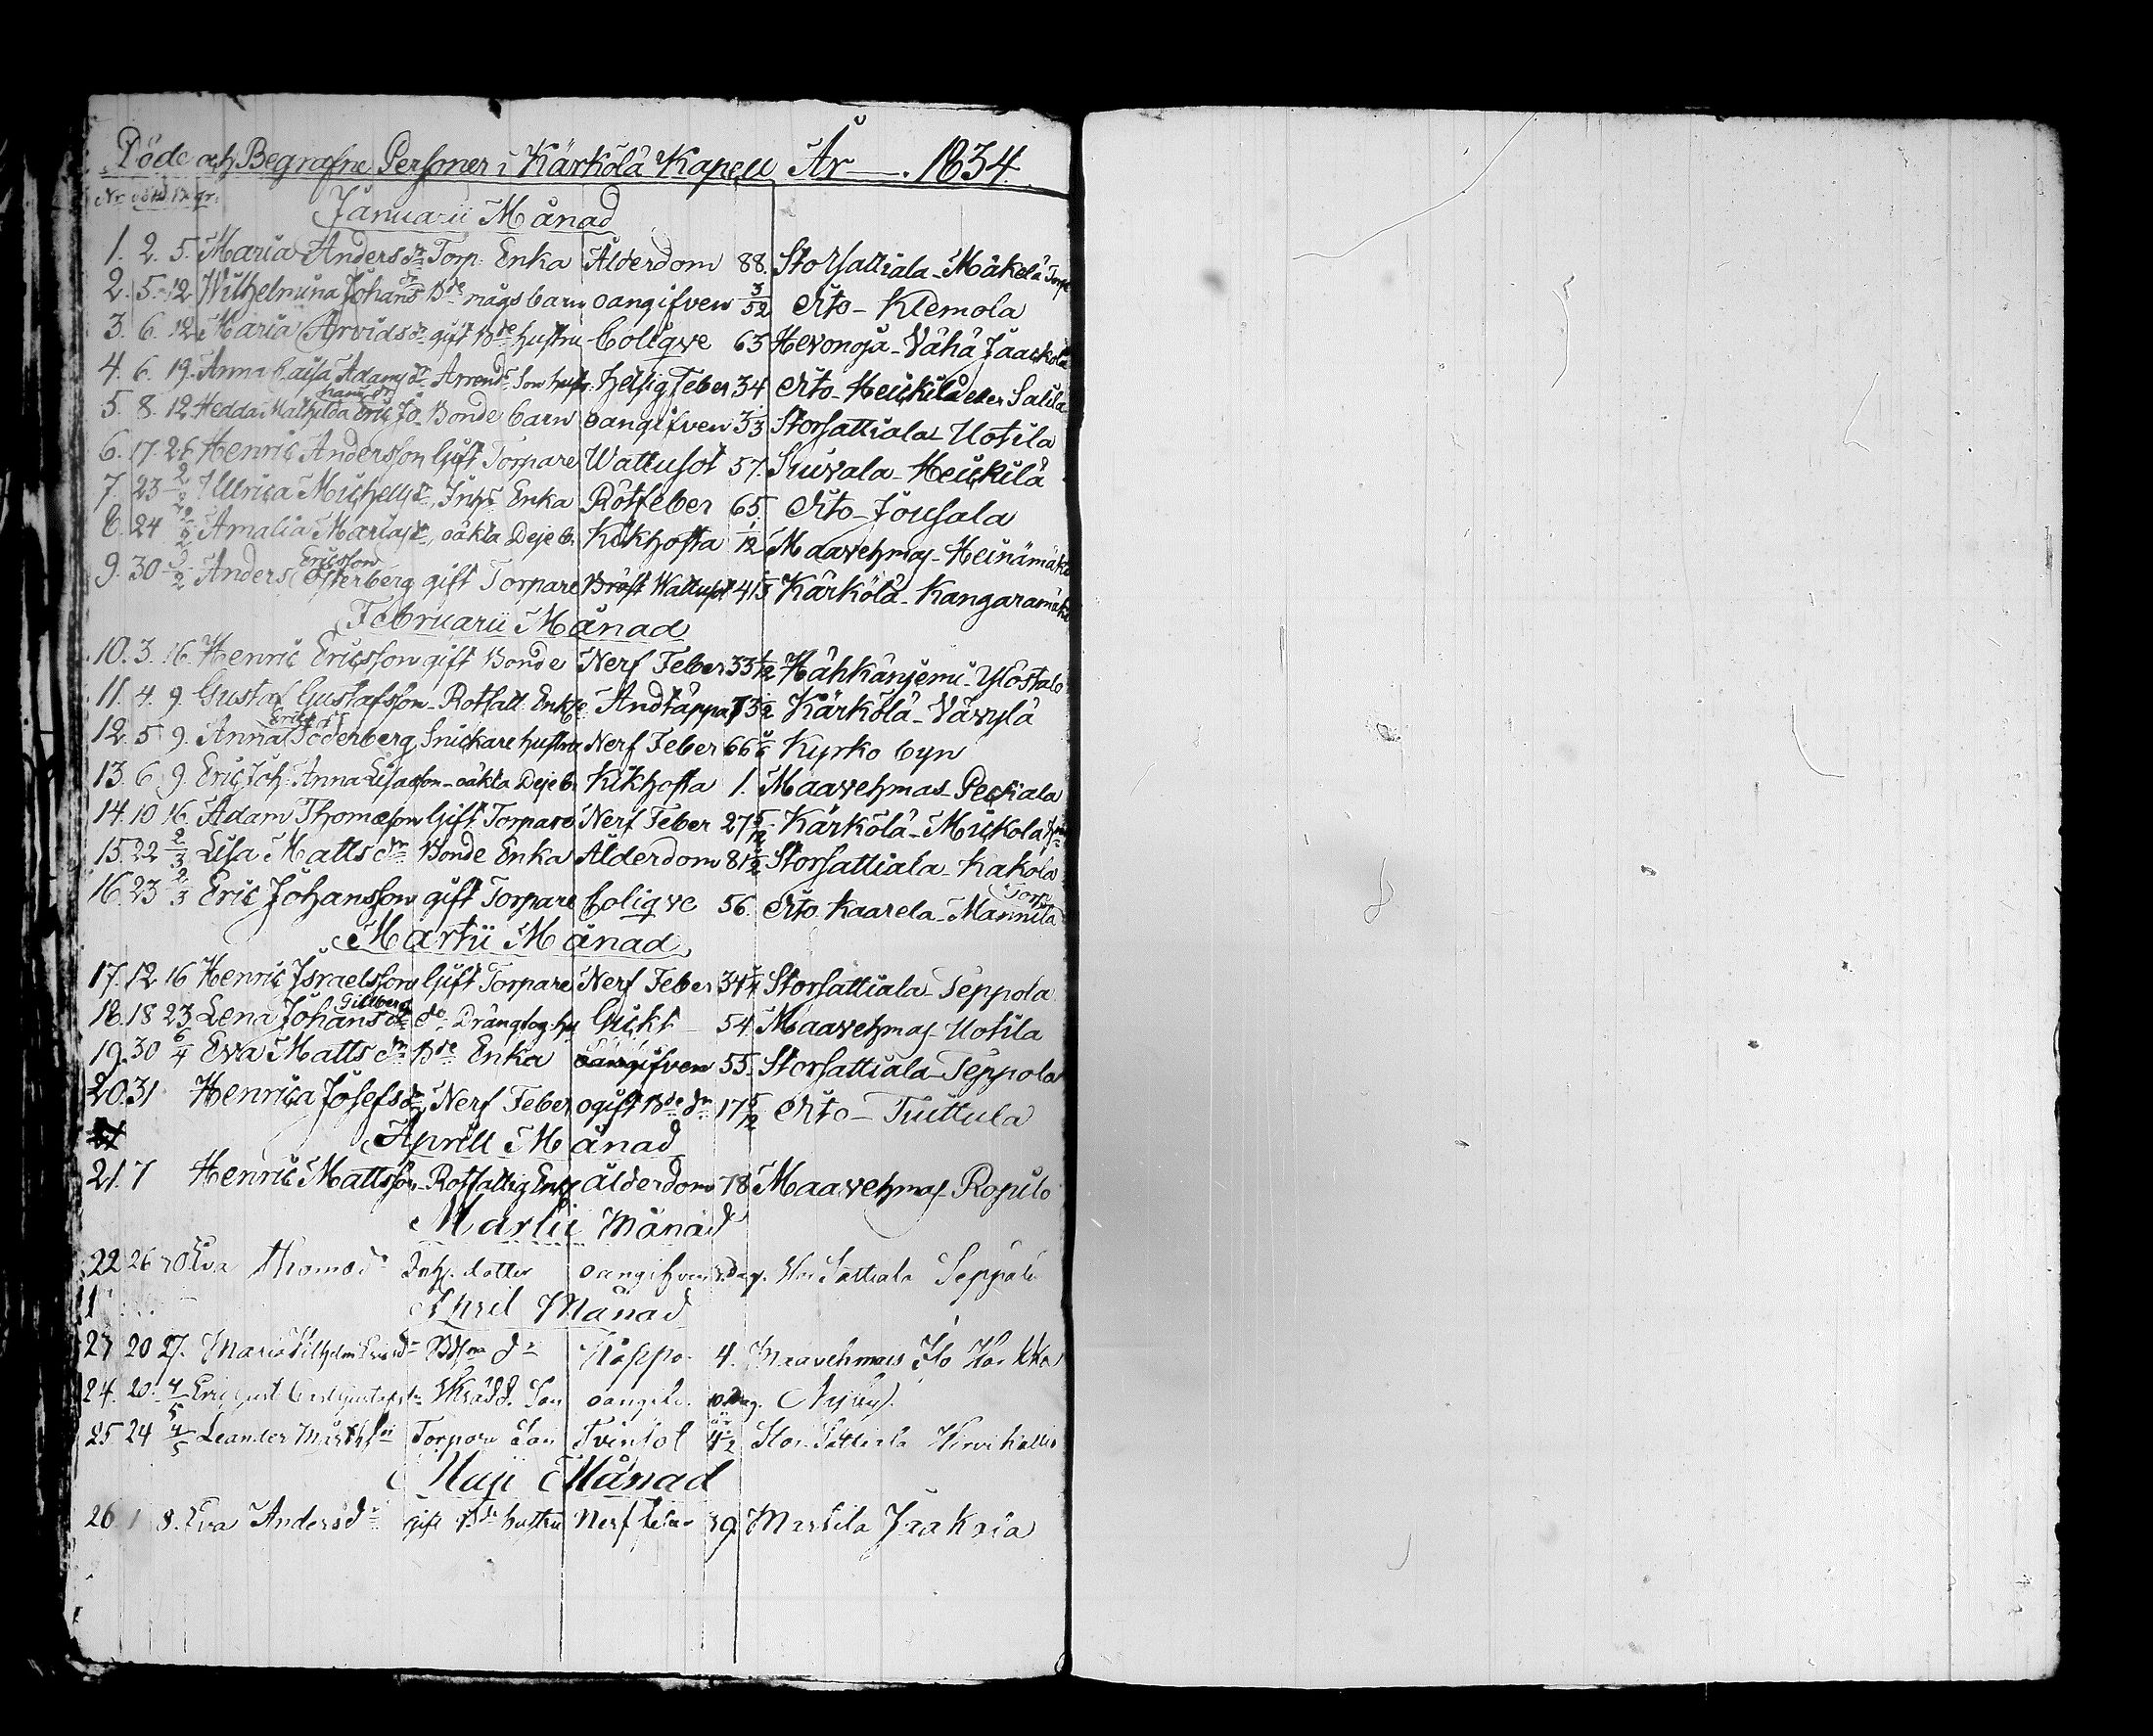 Döde och Begrafne Personer i Kärkölä Kapell År 1834.
Nr. död. begr.
Januarii Månad
1. 2. 5. Maria Andersdr Torp. Enka Ålderdom 88. Storsattiala - Mäkelä Torp
2. 5. 12 Wilhelmina Johansdr Bde mågs barn oangifven 3/52 Dito - Klemola
3. 6. 12 Maria Arvidsdr gift Bde hustru Coliqve 63 Hevonoja - Vähä Jaackola
4. 6. 19. Anna Caisa Adamsdr Arrendr Son hustr. Hetsig Feber 34 Dito - Heickilä eller Salila
5. 8. 12 Hedda Mathilda Eric Jo hansdr Bonde barn oangifven Storsattiala - Uotila
6. 17. 26 Henric Andersson Gift Torpare Wattusot 57. Suvala - Heickilä
7. 23 2/2 Ullrica Michellsdr, Inhs Enka Rötfeber 65 Dito - Jousala
8. 24 2/2 Amalia Mariasdr, oäkta Deje b. Kikhosta 1/12 Maavehmas - Heinämäki
9. 30 2/2 Anders Ericsson Österberg gift Torpare Bröst Wattusot 41 Kärkölä - Kangaramäki
Februarii Månad
10. 3. 16. Henric Ericsson gift Bonde Nerf Feber 33 1/12 Hähkänjemi - Ylöstalo
11. 4. 9. Gustaf Gustafsson - Rotfall. Enkl. Andtäppa 73 1/2 Kärkölä - Vävylä
12. 5 9. Anna Ericsdr Söderberg Snickare hustru Nerf Feber 66 Kyrko byn
13. 6 9. Eric Joh. Anna Lisasson - oäkta Deje b. Kikhosta 1. Maavehmas - Peckala
14. 10 16. Adam Thomasson Gift Torpare Nerf Feber 27 5/12 Kärkölä - Mickola
15. 22 2/3 Lisa Mattsdr Bonde Enka Ålderdom 81 1/2 Storsattiala - Kakola
16. 23 2/3 Eric Johansson gift Torpare Coliqve 56. Dito Kaarela - Mannila Torp
Martii Månad
17. 12 16 Henric Israelsson Gift Torpare Nerf Feber 34 Storsattiala - Seppola
18. 18 23 Lena Johansdr Gillberg Drängkog. hu Gickt 54 Maavehmas - Uotila
19. 30 6/4 Eva Mattsdr Bde Enka oangifven 55. Storsattiala - Teppola
20. 31 Henrica Josefsdr Nerf Feber ogift Bde dr 17 5/12 Dito - Tuittula
Aprill Månad
21. 7 Henric Mattsson - Rotfattig Enkl ålderdom 78 Maavehmas - Ropilo
Martii Månad
22 26 30 Eva Thomasdr Inhs. dotter oangifven dag. Stor Sattiala Seppälä
April Månad
23 20 27. Maria Vilhelm. dr dr Koppo 4. Maavehmais Iso
24. 20. 4/5 Eric Gust. Skrädd. Son oangifv. dag.
25 24 4/5 Leander Torpare Son Tvinsot 4 1/2 Stor Sattiala Hirvikallio
Maji Månad
26. 1 8. Eva Andersdr gift Bde hustru Nerf feber 39 Marttila Jaakola